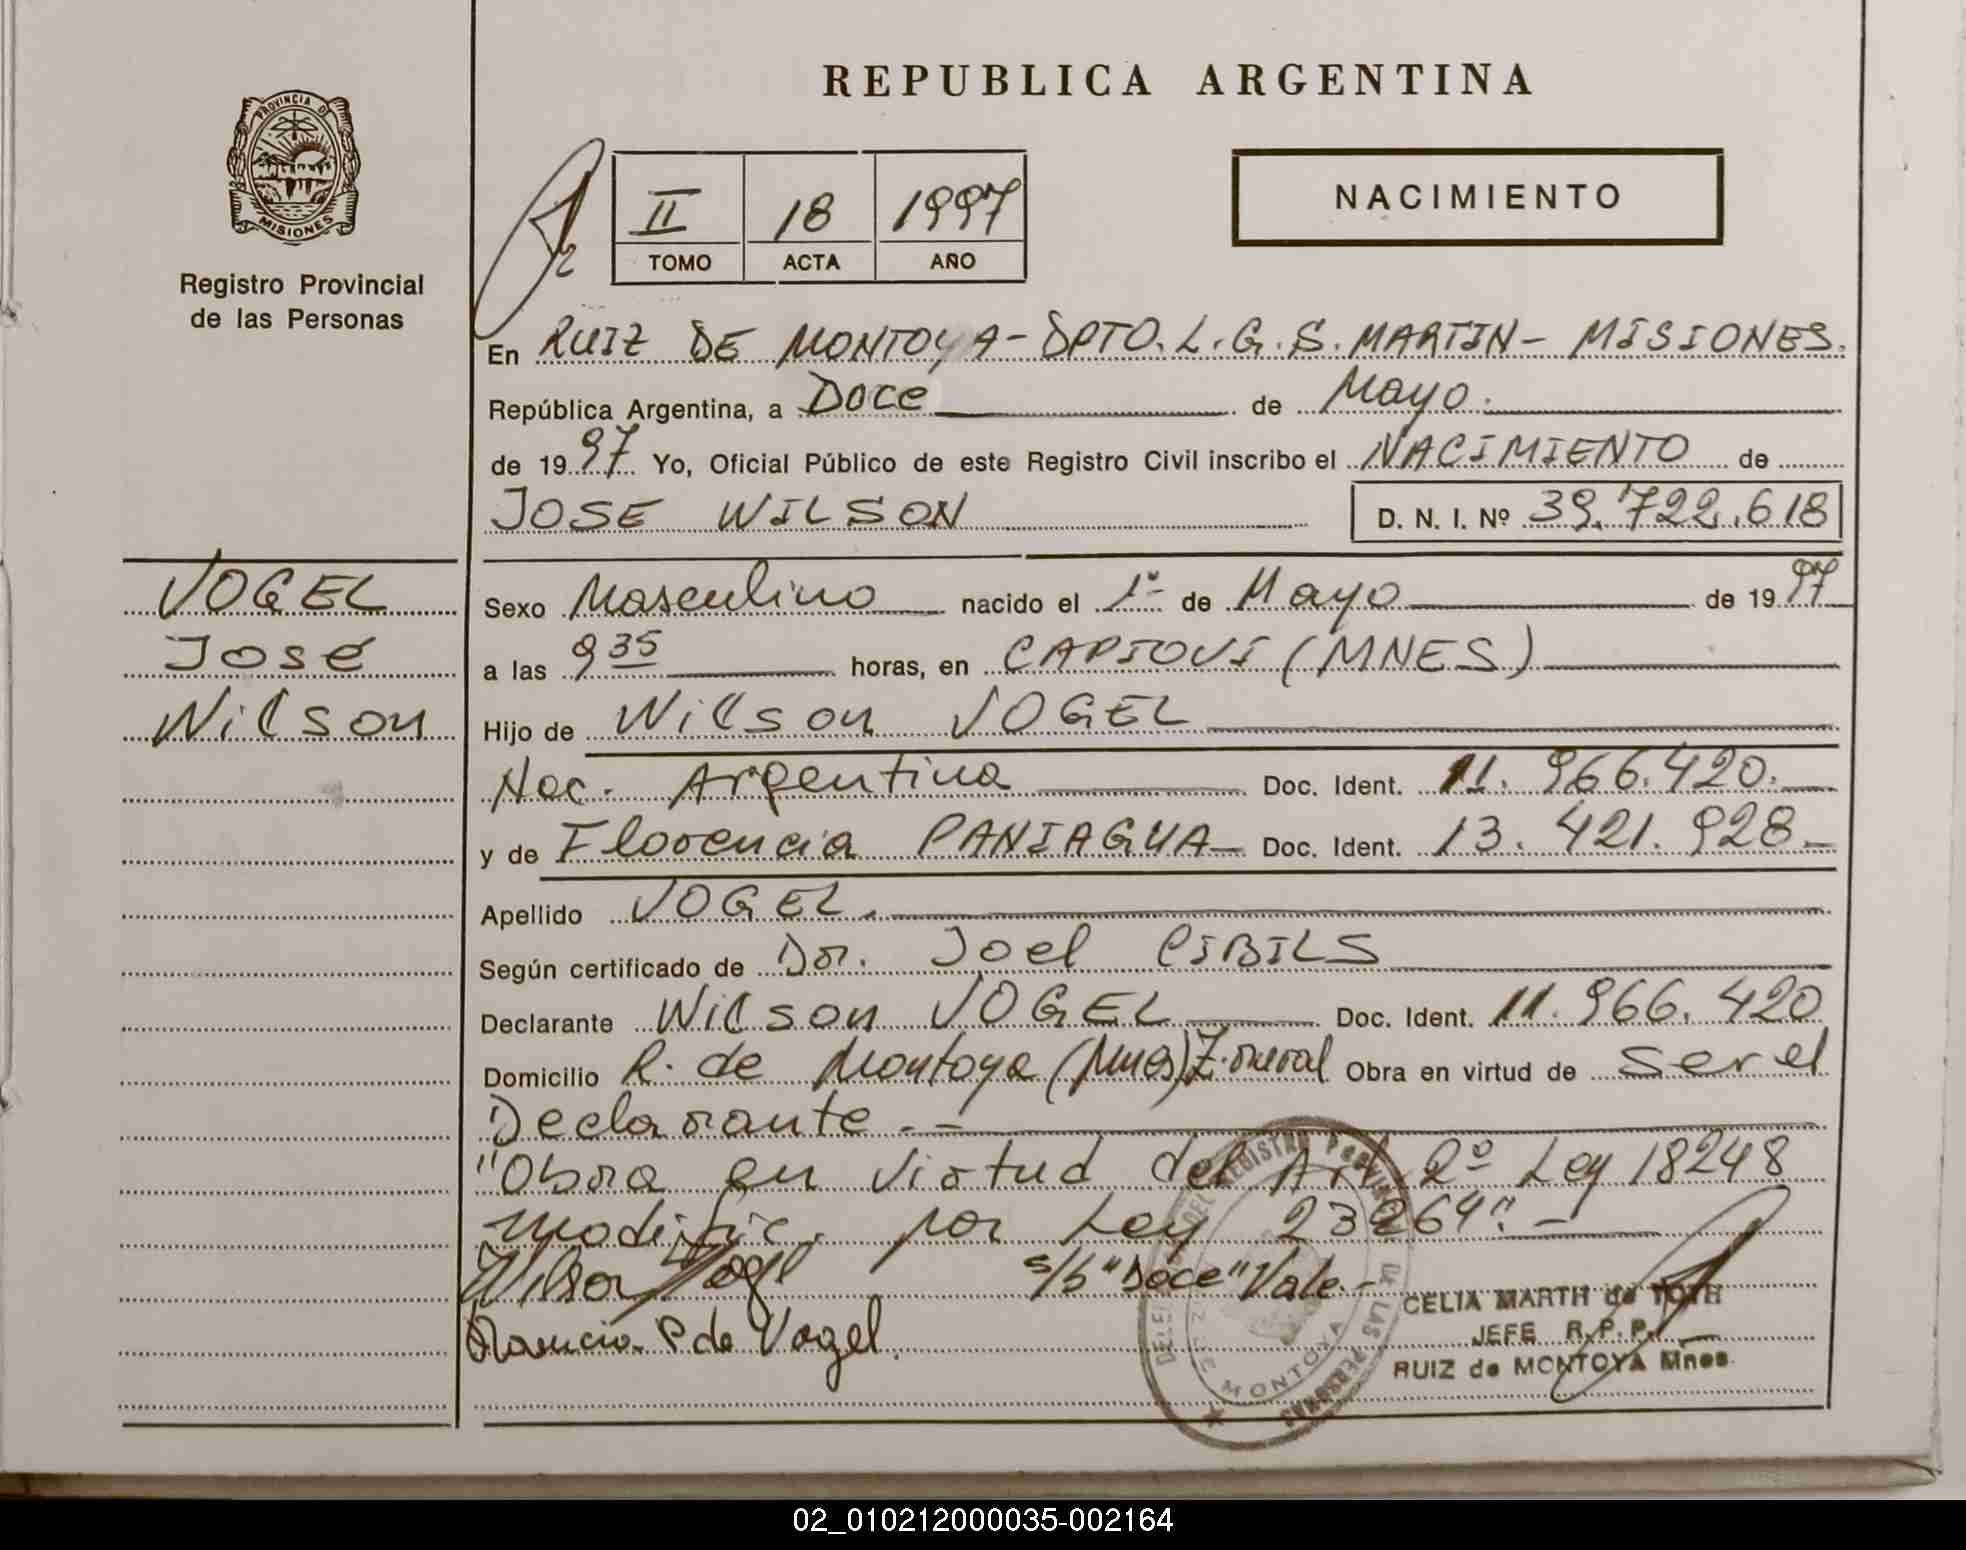 REPUBLICA ARGENTINA
PROVINCIA DE MISIONES
Registro Provincial
de las Personas
II 18 1997
TOMO ACTA AÑO
NACIMIENTO
En RUIZ DE MONTOYA - DPTO. L. G. S. MARTIN - MISIONES.
República Argentina, a DOCE de Mayo.
de 1997 Yo, Oficial Público de este Registro Civil inscribo el NACIMIENTO de
JOSE WILSON D. N. I. Nº 39.722.618
VOGEL
José
Wilson
Sexo Masculino nacido el 1º de Mayo de 1997
a las 9 35 horas, en CAPIOVI (MNES)
Hijo de Wilson VOGEL
Nac. Argentina Doc. Ident. 11.966.420.
y de Florencia PANIAGUA Doc. Ident. 13.421.928.
Apellido VOGEL.
Según certificado de Dr. Joel CIBILS
Declarante Wilson VOGEL Doc. Ident. 11.966.420
Domicilio R. de Montoya (Mnes) Z. rural Obra en virtud de ser el
Declarante.-
"Obra en virtud del Art. 2º Ley 18248
modific. por Ley 23264".-
Wilson Vogel s/b "Doce" Vale.-
Florencia P de Vogel.
CELIA MARTH de TOTH
JEFE R.P.P.
RUIZ de MONTOYA Mnes.
DEL REGISTRO PROVINCIAL DE LAS PERSONAS
MONTOYA
02_010212000035-002164